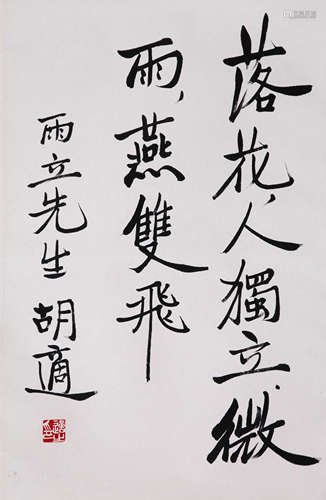 落花，人獨立，微
雨，燕雙飛
雨立先生 胡適